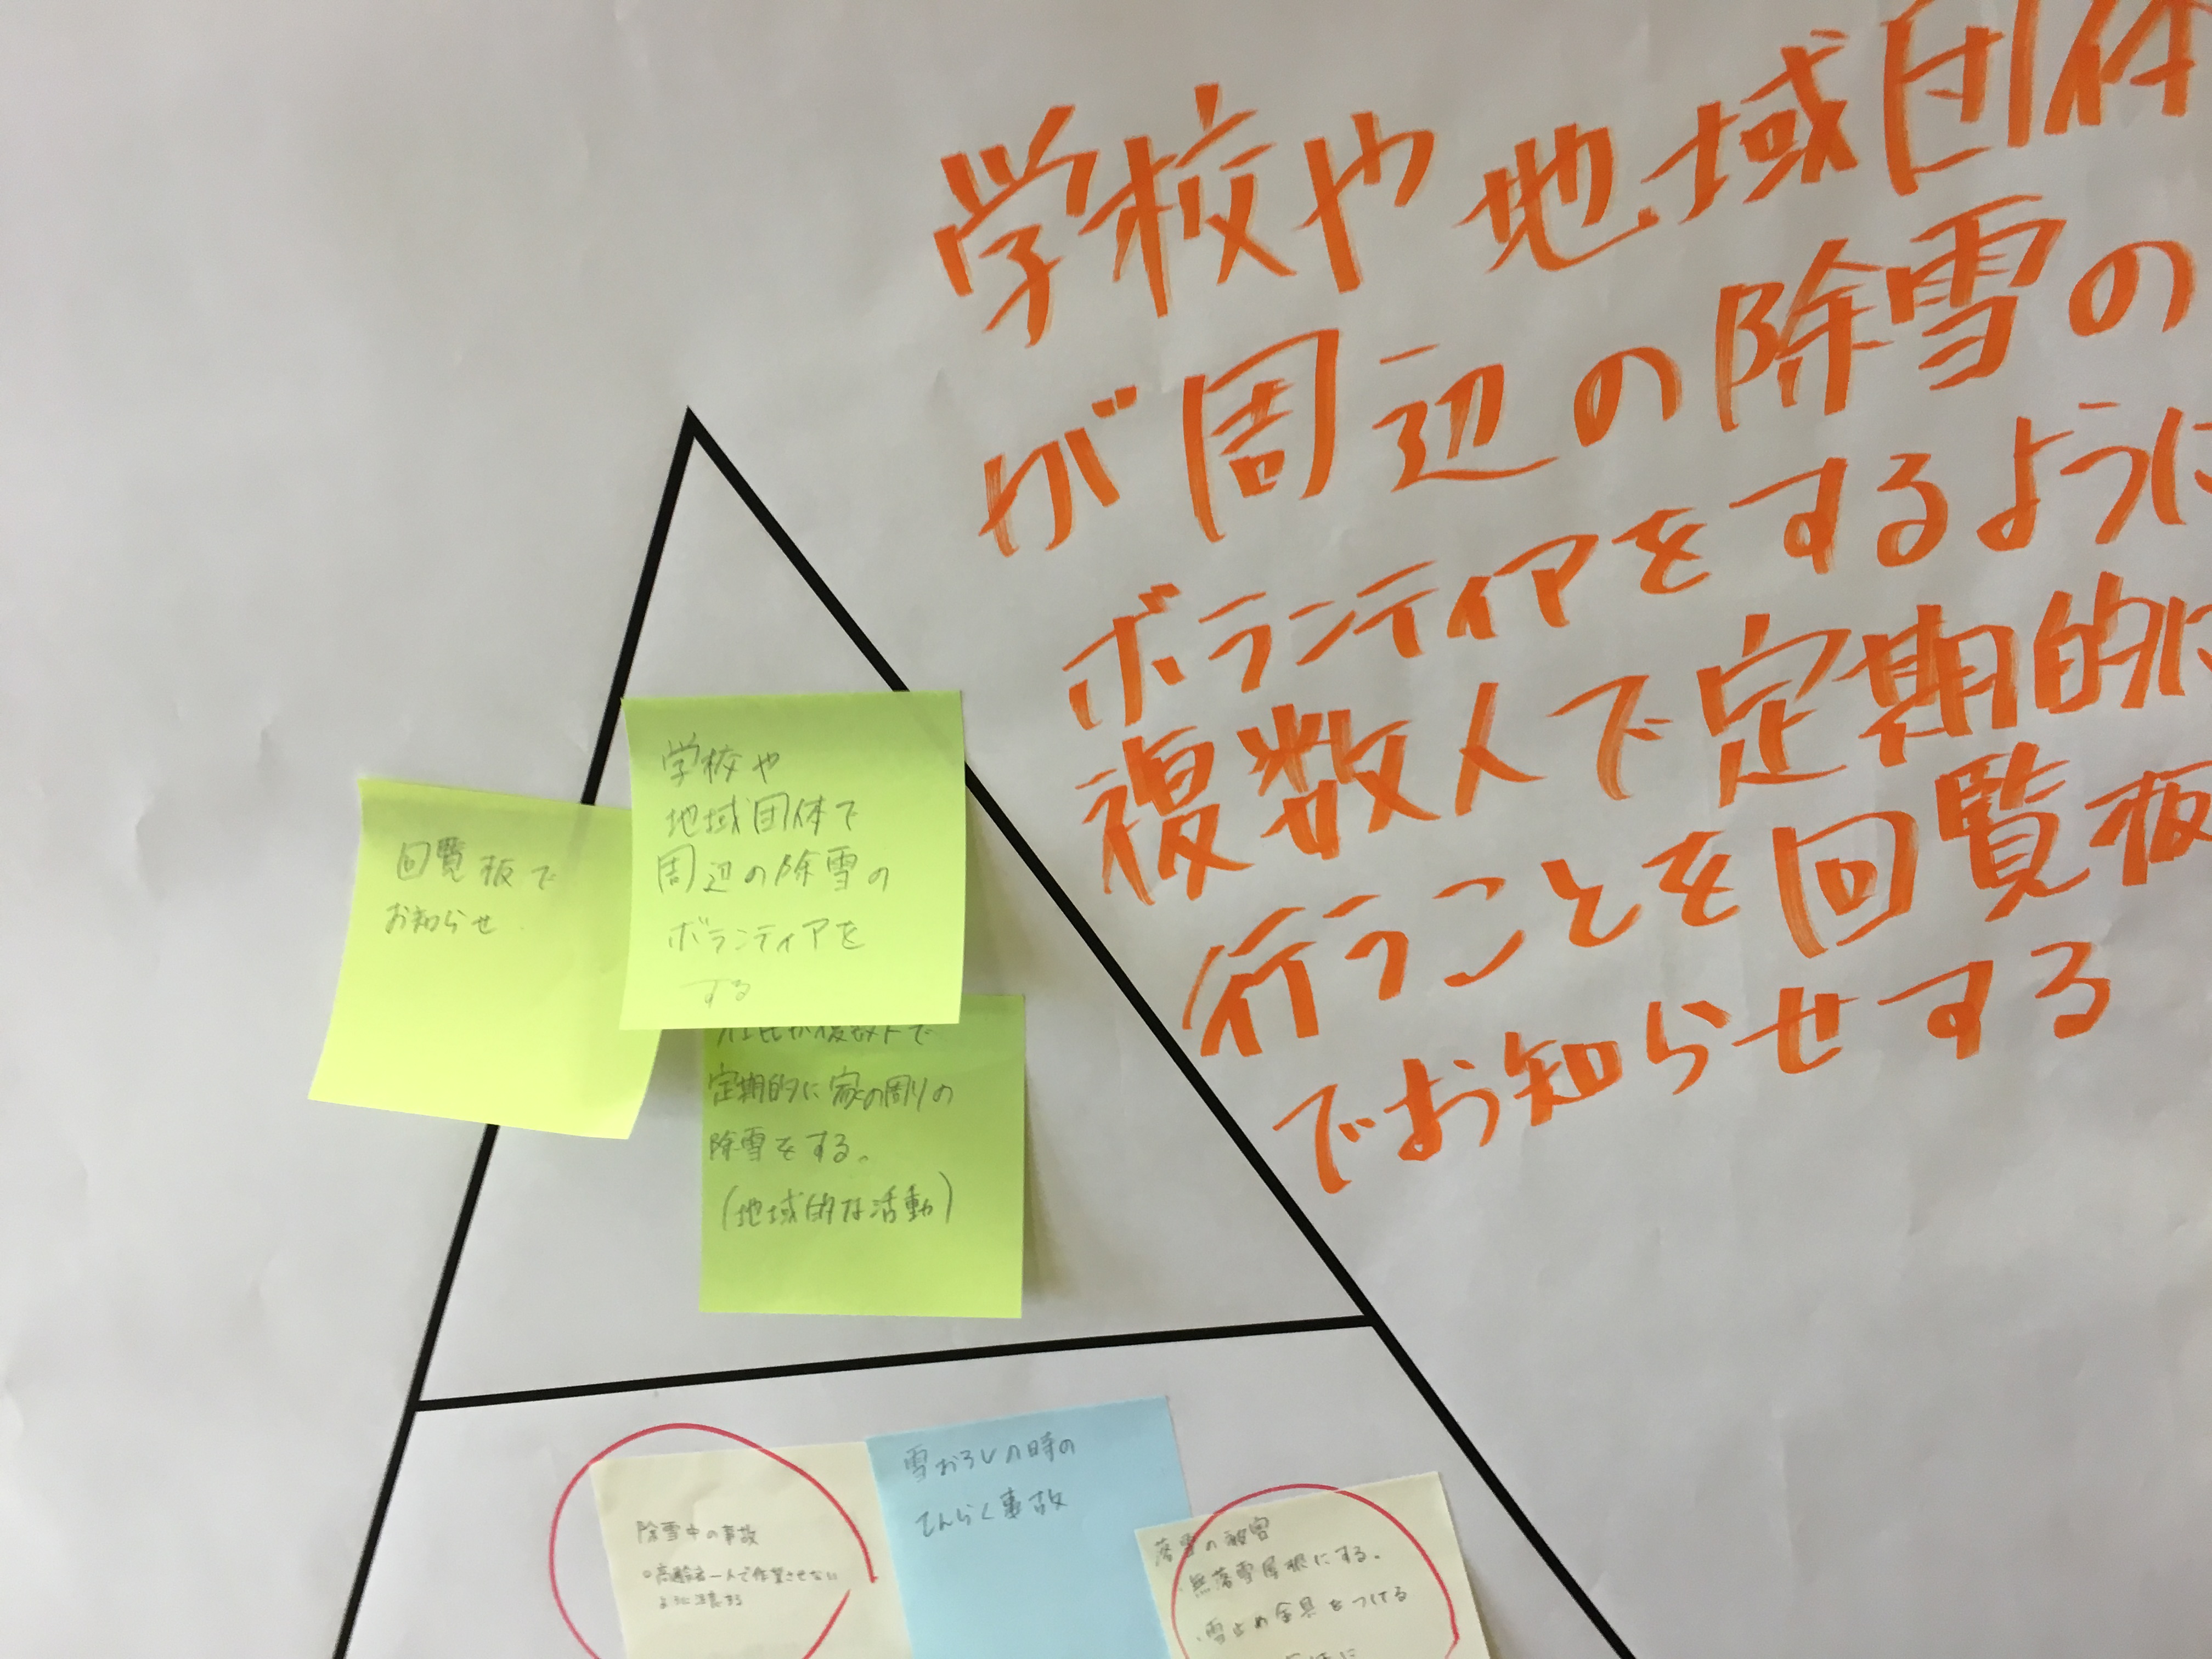 学校や地域団体
が周辺の除雪の
ボランティアをするように
複数人で定期的に
行うことを回覧板
でお知らせする
学校や
地域団体で
周辺の除雪の
ボランティアを
する
回覧板で
お知らせ
定期的に家の周りの
除雪をする。
(地域的な活動)
除雪中の事故
○高齢者一人で作業させない
ように注意する
雪おろしの時の
てんらく事故
落雪の被害
・無落雪屋根にする。
・雪止め金具をつける